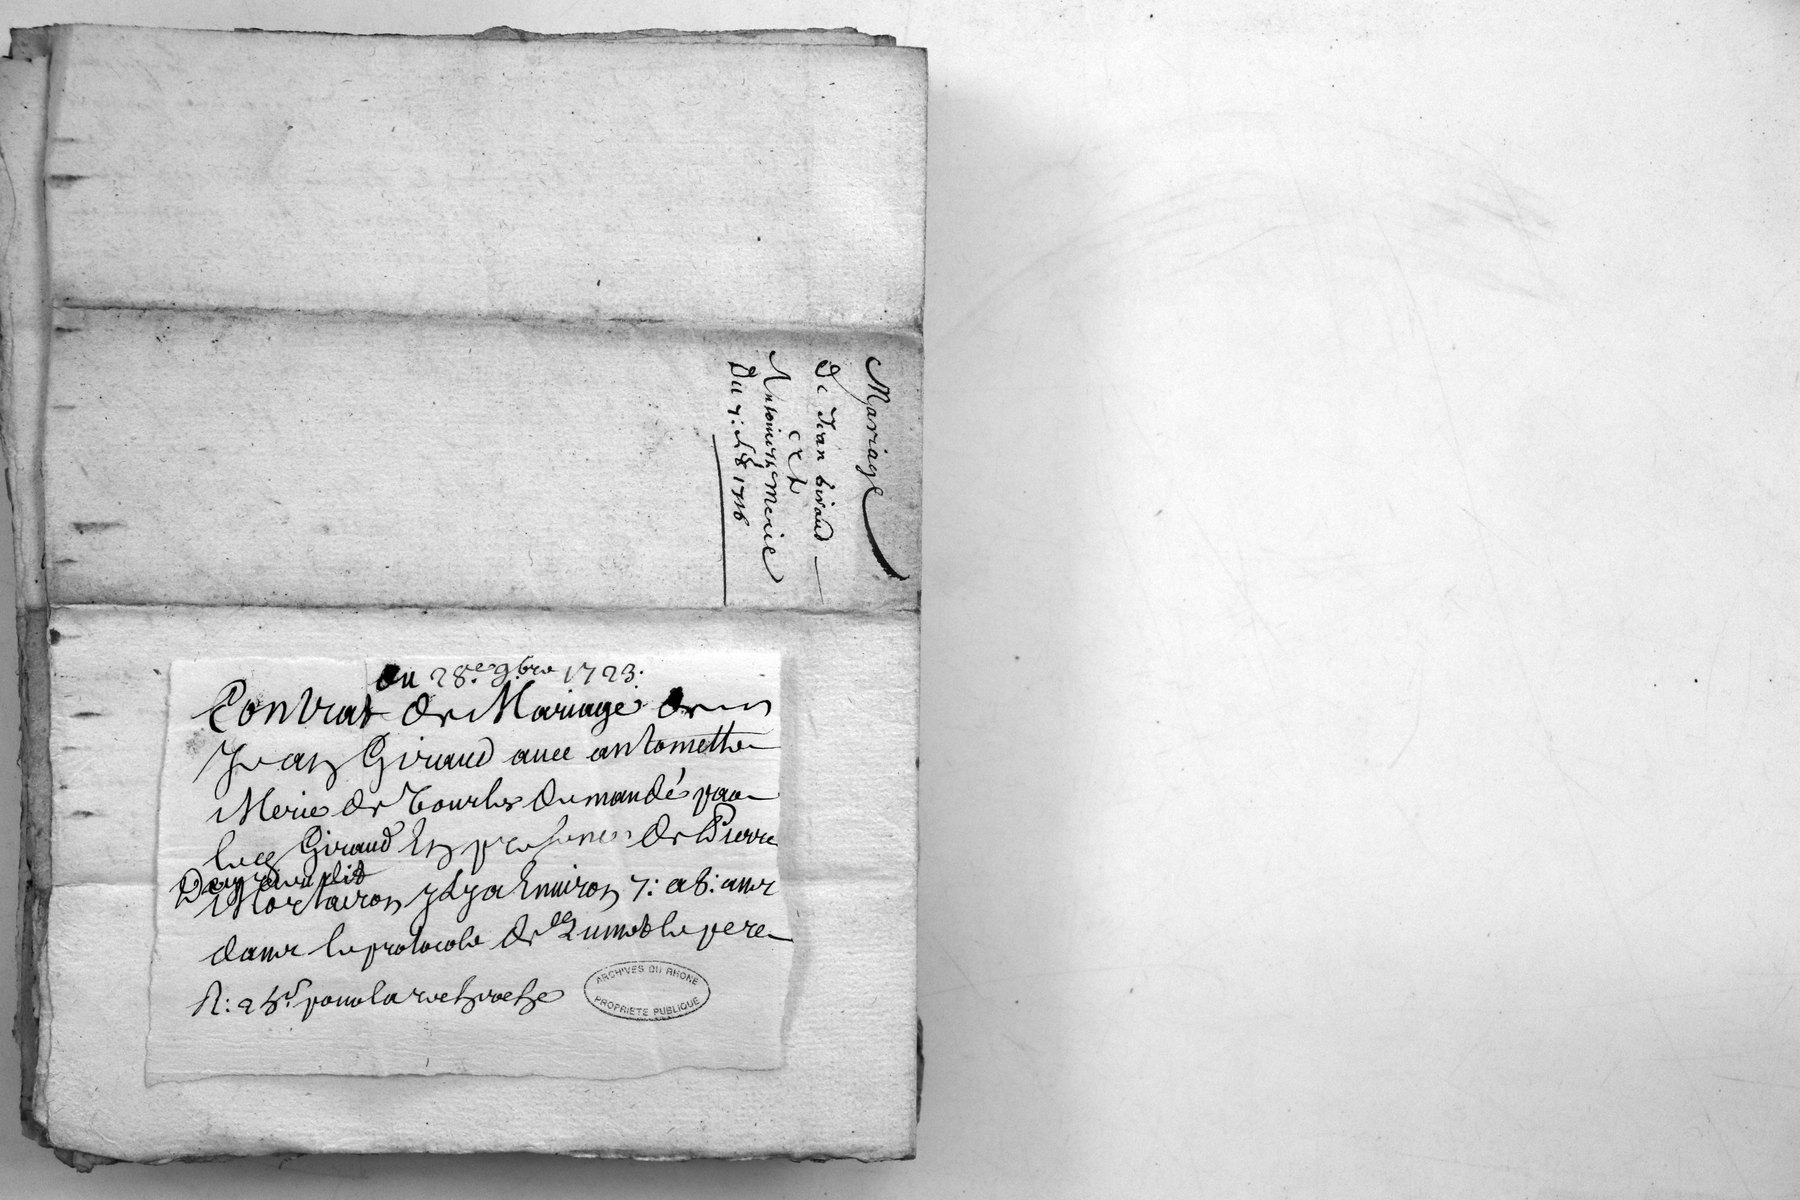 Mariage
De Jean Giraud
et
Antoinette Merie
Du 7: 1716
Du 28.e 9.bre 1723.
Contrat de Mariage de
Jean Giraud avec antoinette
Merie de Courles demandé par
led Giraud En presence de Pierre
dit
Mortairon yl ya Environ 7: a 8: ans
dans le protocole de le pere
R: 2 s pour la recherche
ARCHIVES DU RHONE
PROPRIETE PUBLIQUE